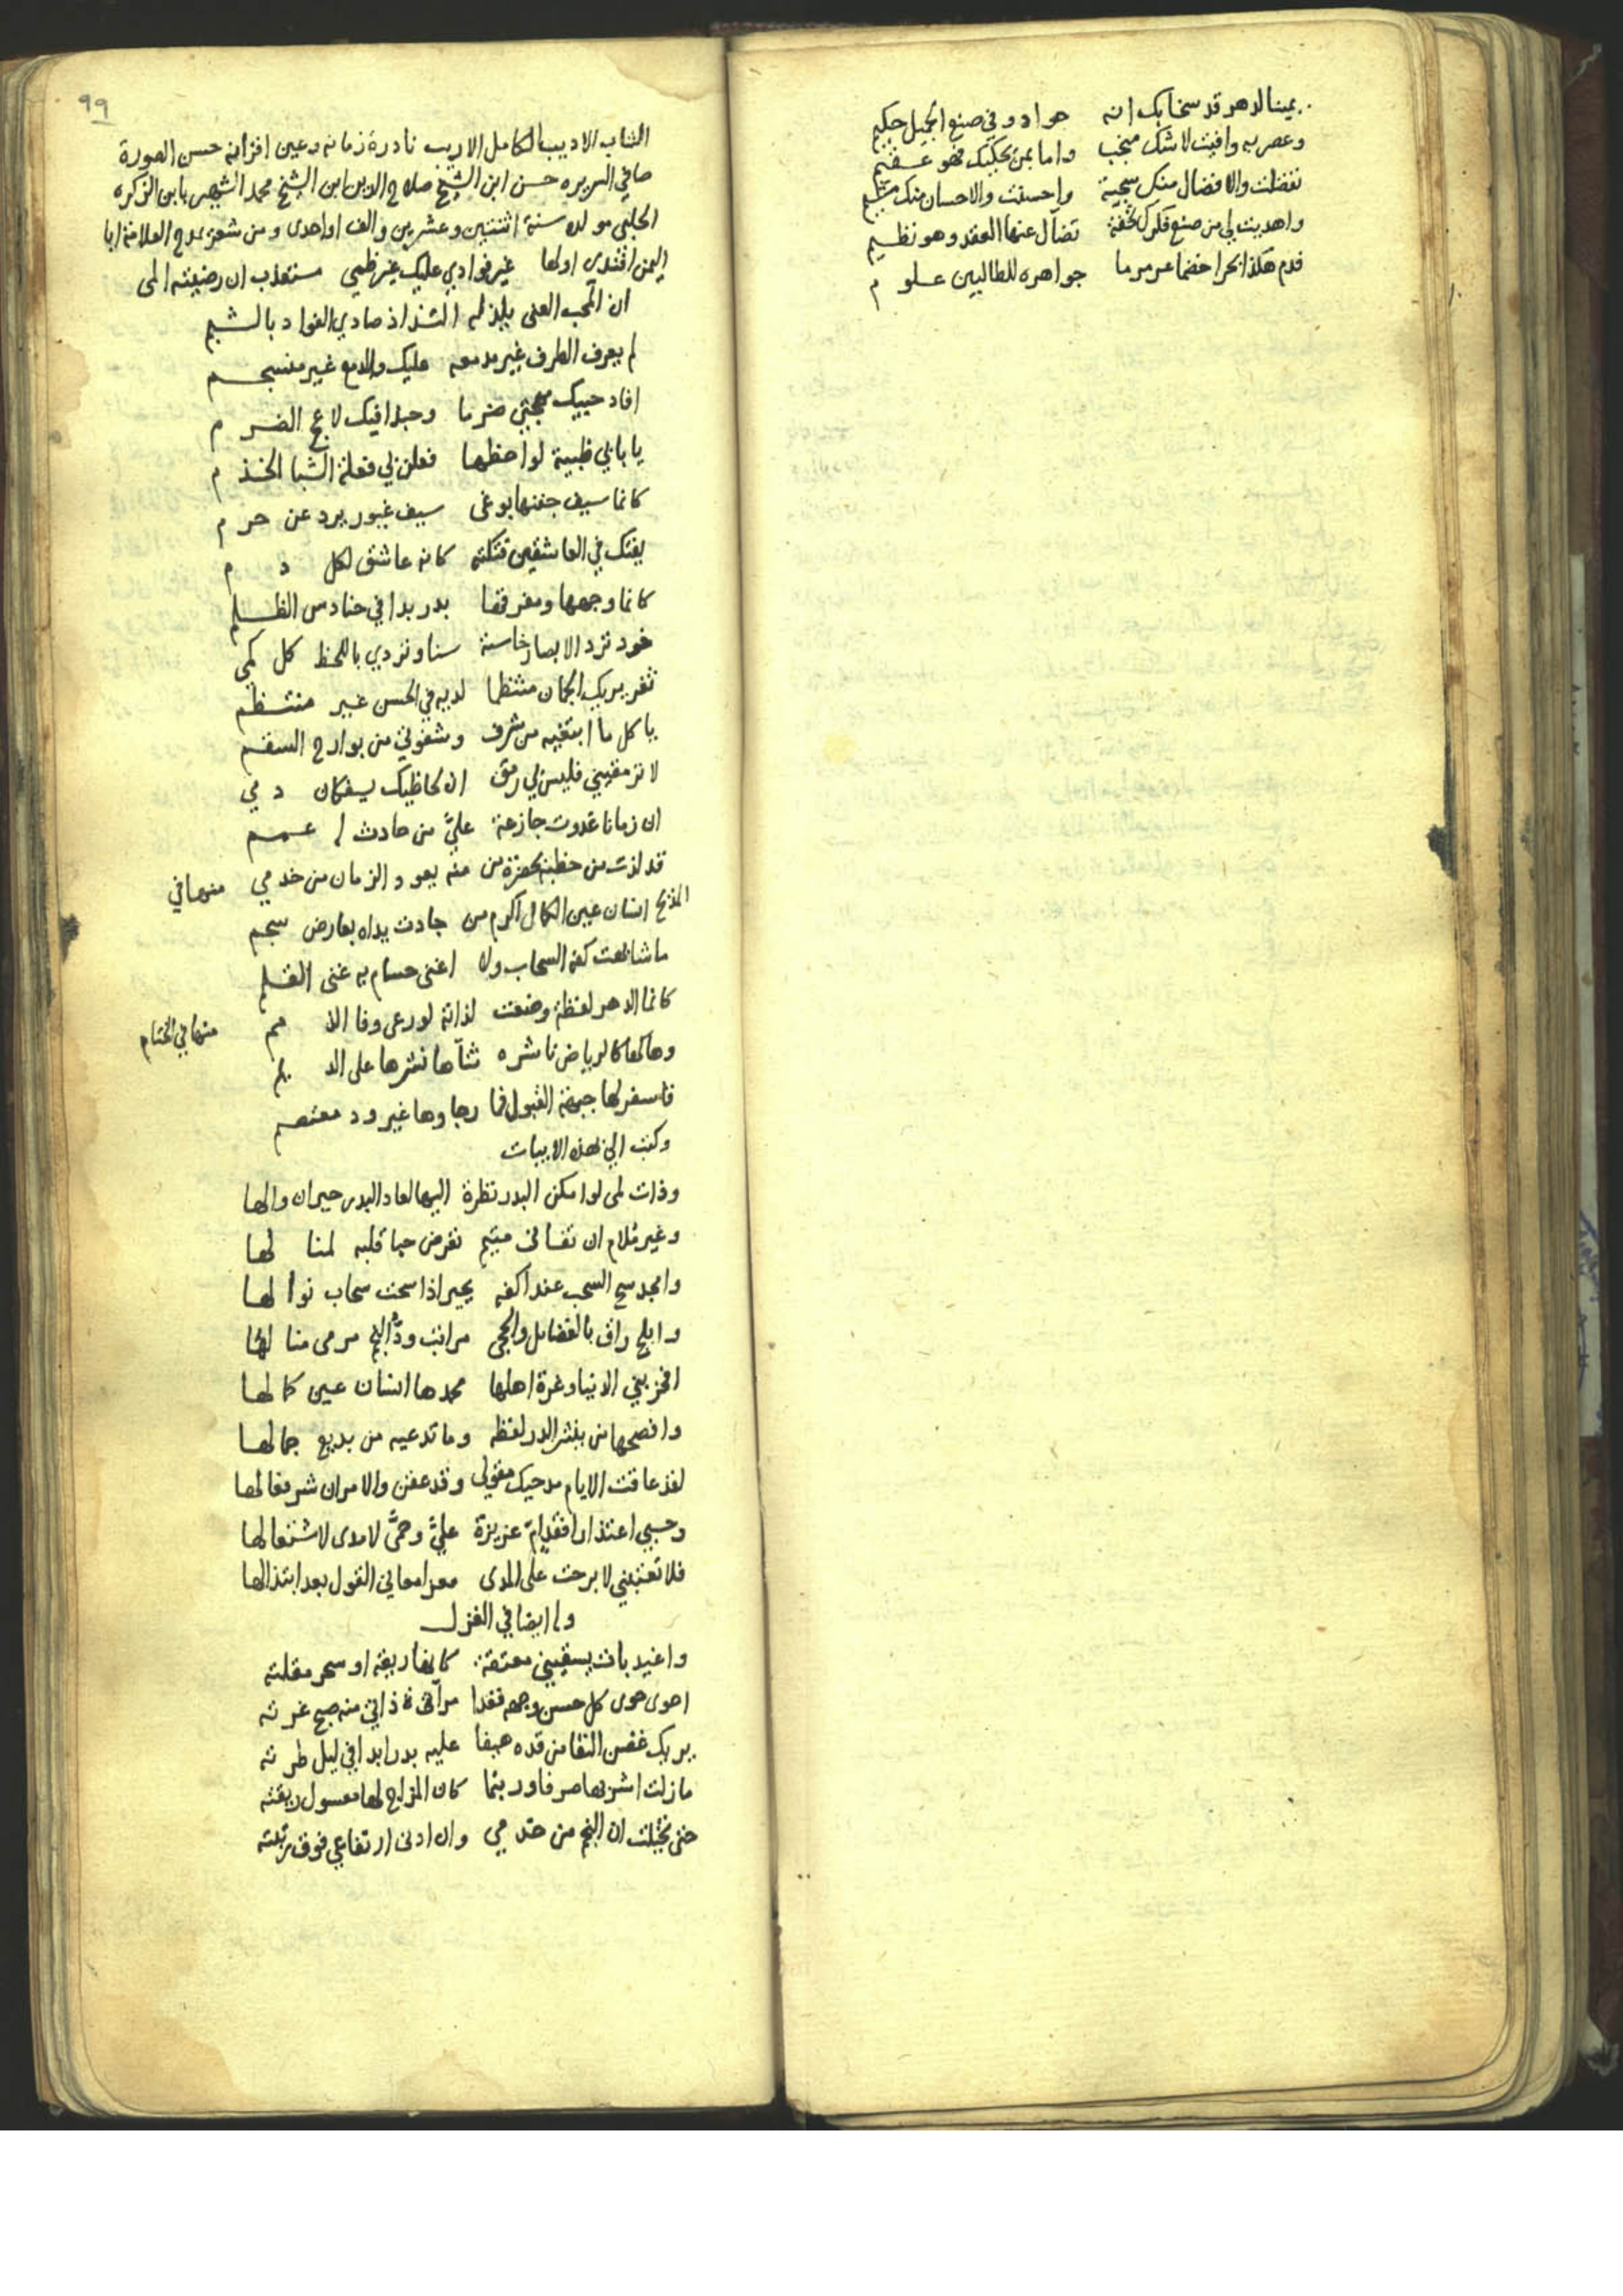 يمينا لدهر قد سخا بك انه جواد وفي صنع الجميل حكيم
وعصر به وافيت لا شك منجب واما بمن يحكيك فهو عقيم
تفضلت والافضال منك سجية واحسنت والاحسان منك
واهديت لي من صنع فكرك تحفة تضآل عنها العقد وهو نظيم
فدم هكذا بحرا خضما عرمرما جواهره للطالبين علوم
٩٩
الشاب الاديب الكامل الاريب نادرة زمانه وعين اقرانه حسن الصورة
صافي السريره حسن ابن الشيخ صلاح الدين ابن الشيخ محمد الشهير بابن
الحلبي مولده سنة اثنتين وعشرين والف او احدى ومن شعره يمدح العلامة ابا
اليمن افندى اولها غير فوادي عليك غير ظمي مستعذب ان رضيته المى
ان المحب العنى يلذ له اذ صادي الفواد بالشبم
لم يعرف الطرف غير مدمعه عليك والدمع غير منسجم
افاد حبيك مهجتي ضرما وحبذا فيك لاعج الضرم
يا بابي ظبية لواحظها فعلن بي فعلة الشبا الخذم
كانما سيف جفنها بوغى سيف غيور يرد عن حرم
يفتك في العاشقين فتكته كانه عاشق لكل دم
كانما وجهها ومفرقها بدر بدا في حنادس الظلم
خود ترد الابصار خاسئة سنا وتردي باللحظ كل كمى
ثغر يريك الجمان منتظما لديه في الحسن غير منتظم
يا كل ما ابتغيه من شرف وشفوتي من بوارح السقم
لا ترمقيني فليس لي رمق ان لحاظيك يسفكان دمي
ان زمانا غدوت جازعة عليَّ من حادث
قد لذت من خطبه بحضرة من منه يعود الزمان من خدمي منها في
المديح انسان عين الكمال اكرم من جادت يداه بعارض سجم
ما شابهت كفه السحاب ولا اغنى حسام به غنى القلم
كانما الدهر لفظة وضعت لذاته لو رعى وفا الذمم منها في الختام
وهاكها كالرياض ناشره ثناها نشرها على الديم
فاسفر لها جبهة القبول فما رجاوها غير ود معتصم
وكتب الي بهذه الابيات
وذات لمى لو امكن البدر نظرة اليها لعاد البدر حيران والها
وغير ملام ان تفانى متيم تعرض حبا قلبه لمنالها
وامجد سح السحب عند اكفه يحير اذا سحت سحاب نوالها
وابلج راق بالفضايل والحجى مراتب ودَّ النجم مرمى منالها
افخر بني الدنيا وغرة اهلها محمدها انسان عين كمالها
وافصحها من ينثر الدر لفظه وما تدعيه من بديع جمالها
لقد عاقت الايام مدحيك مقولي وقد عقن والامران شر فعالها
وحسبي اعتذارا فقد ام عزيزة عليَّ وحمَّى لا مدى لاشتعالها
فلا تعتبنى لا برحت على المدى معز المعالي القول بعد ابتذالها
وله ايضا في الغزل
واغيد بات يسقيني معتقة كانها ريقه او سحر مقلته
احوى حوى كل حسن وجهه فغدا مرآة ذاتي منه صبح غرته
يريك غصن النقا من قده هيفا عليه بدر ابدا في ليل طرته
ما زلت اشربها صرفا وربما كان المزاج لها معسول ريقته
حتى تخيلت ان النجم من خدمي وان ادنى ارتفاعي فوق رتبته